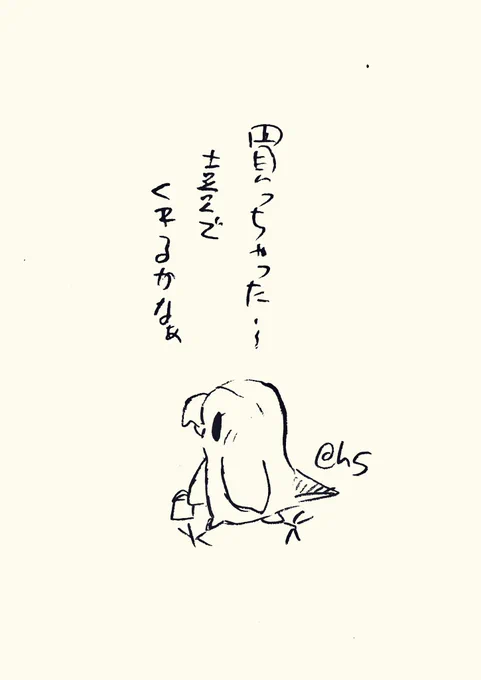 買っちゃった…
喜んで
くれるかなぁ
@h5